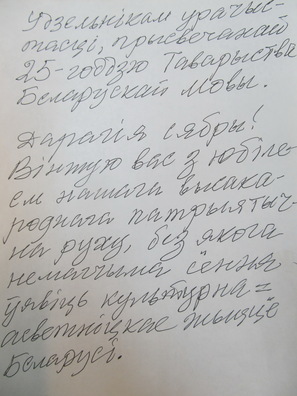 Удзельнікам урачыс-
тасці, прысвечанай
25-годдзю Таварыства
Беларускай мовы.
Дарагія сябры!
Віншую вас з юбіле-
ем нашага высака-
роднага патрыятыч-
на руху, без якога
немагчыма сёння
ўявіць культурна=
асветніцкае жыццё
Беларусі.